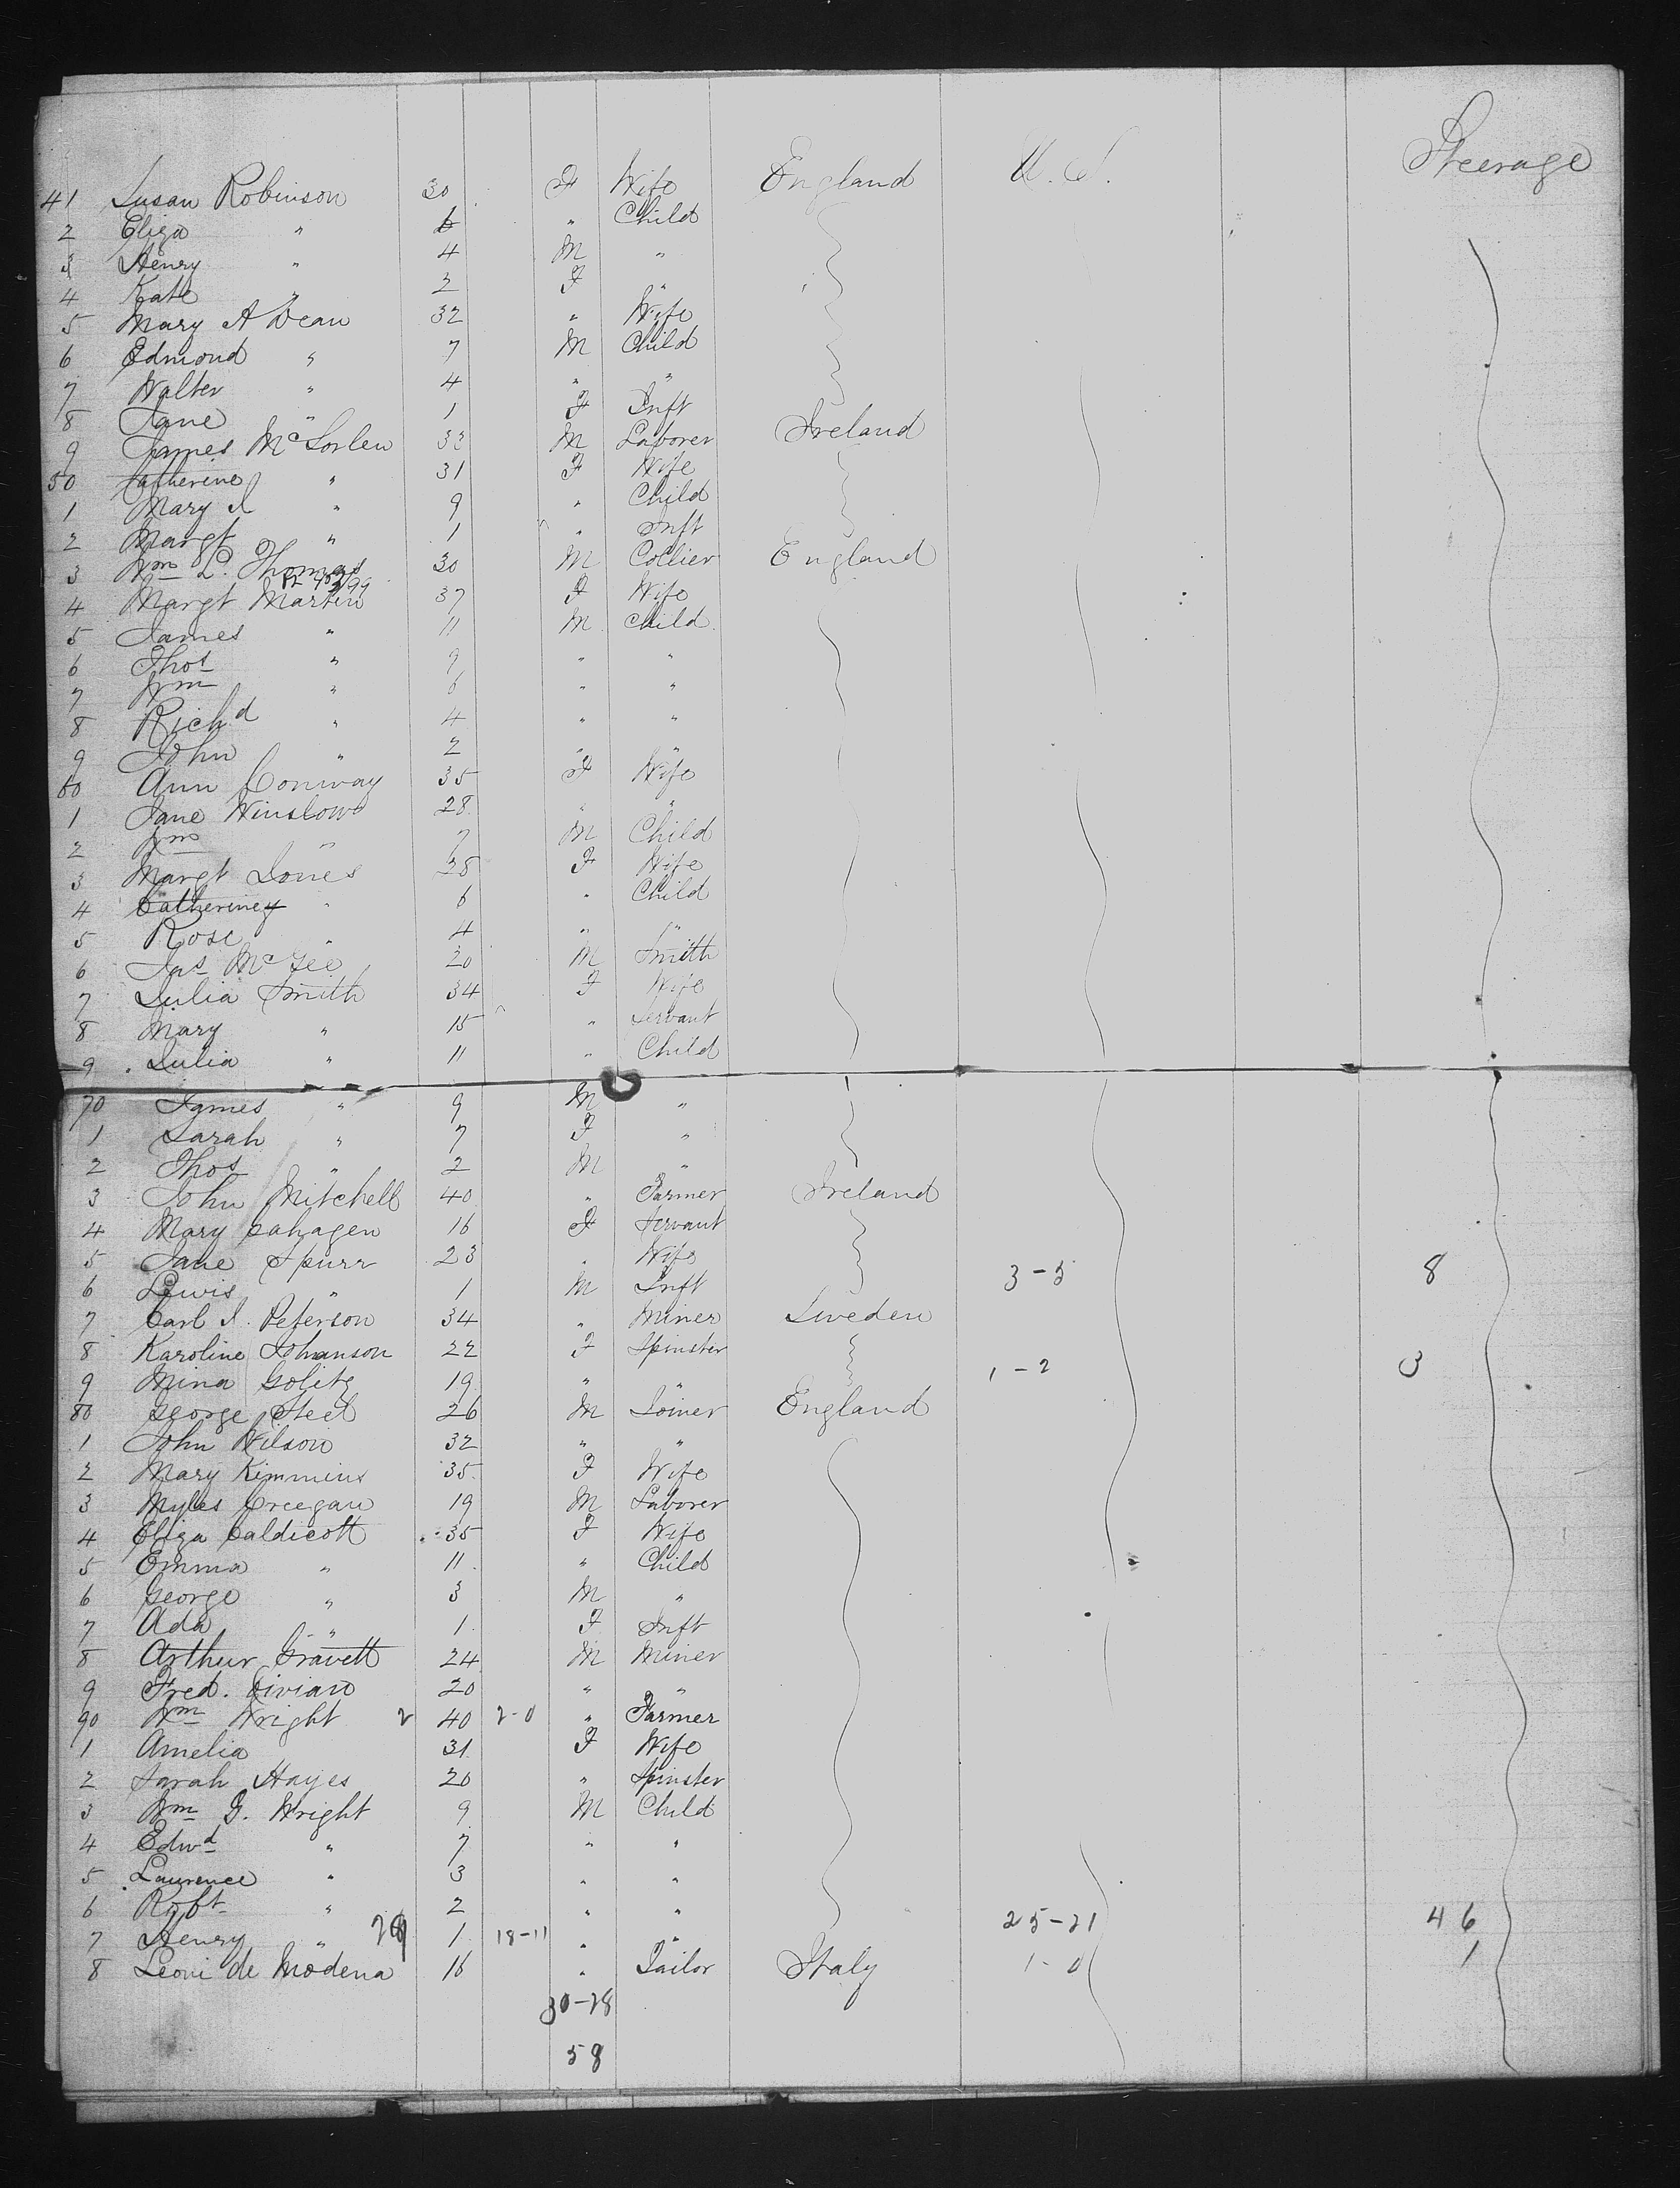 Steerage
41 Susan Robinson 30 F Wife England U.S.
2 Eliza " 6 " Child
3 Henry " 4 M "
4 Kate " 2 F "
5 Mary A Dean 32 " Wife
6 Edmond " 7 M Child
7 Walter " 4 " "
8 Jane " 1 F Inft
9 James McSorlen 33 M Laborer Ireland
50 Catherine " 31 F Wife
1 Mary J " 9 " Child
2 Margt " 1 " Inft
3 Wm L. Thomas 30 M Collier England
4 Margt Martin 37 F Wife
5 James " 11 M Child
6 Thos " 9 " "
7 Wm " 6 " "
8 Richd " 4 " "
9 John " 2 " "
60 Ann Conway 35 F Wife
1 Jane Winslow 28 " "
2 Wm " 7 M Child
3 Margt Jones 28 F Wife
4 Catherine " 6 " Child
5 Rose " 4 " "
6 Jas McGee 20 M Smith
7 Julia Smith 34 F Wife
8 Mary " 15 " Servant
9 Julia " 11 " Child
70 James " 9 M "
1 Sarah " 7 F "
2 Thos " 2 M "
3 John Mitchell 40 " Farmer Ireland
4 Mary Cahagen 16 F Servant
5 Jane Spurr 23 " Wife
6 Lewis " 1 M Inft 3-5 8
7 Carl J. Peterson 34 " Miner Sweden
8 Karoline Johanson 22 F Spinster
9 Mina Golitz 19 " " 1-2 3
80 George Steel 26 M Joiner England
1 John Wilson 32 " "
2 Mary Kimmins 35 F Wife
3 Myles Creegan 19 M Laborer
4 Eliza Caldicott 35 F Wife
5 Emma " 11 " Child
6 George " 3 M "
7 Ada " 1 F Inft
8 Arthur Gravett 24 M Miner
9 Fred. Vivian 20 " "
90 Wm Wright 2 40 2-0 " Farmer
1 Amelia 31 F Wife
2 Sarah Hayes 20 " Spinster
3 Wm G. Wright 9 M Child
4 Edwd " 7 " "
5 Laurence " 3 " "
6 Robt " 2 " " 25-21 46
7 Henry " 29 1 18-11 " "
8 Leoni de Modena 16 " Tailor Italy 1-0 1
30-28
58